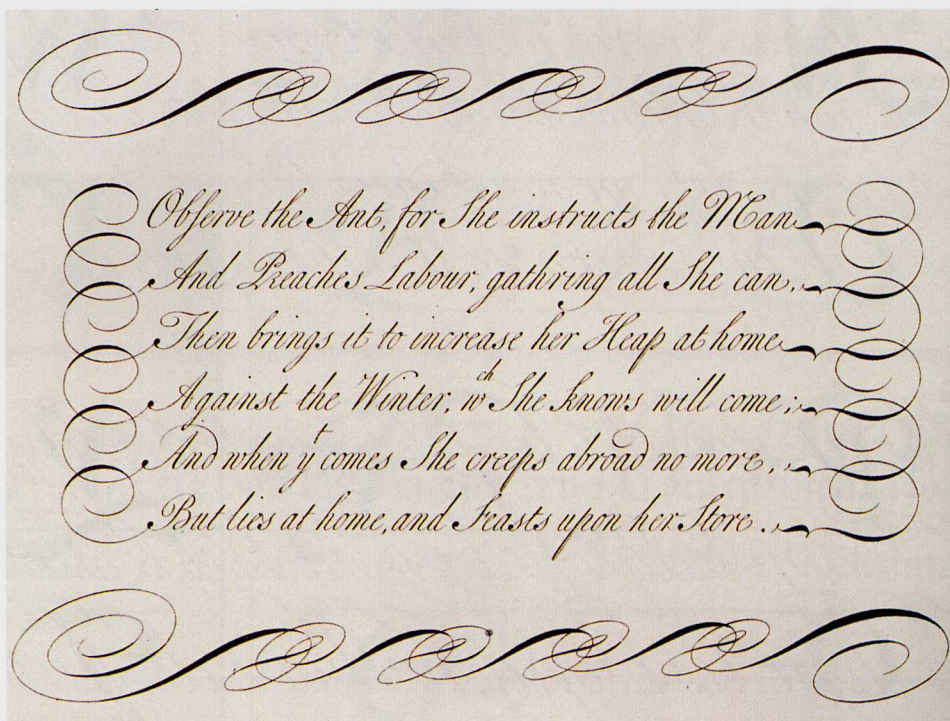 Observe the Ant, for She instructs the Man
And Preaches Labour, gathring all She can,
Then brings it to increase her Heap at home
Against the Winter, wch She knows will come;
And when yt comes She creeps abroad no more,
But lies at home, and Feasts upon her Store.